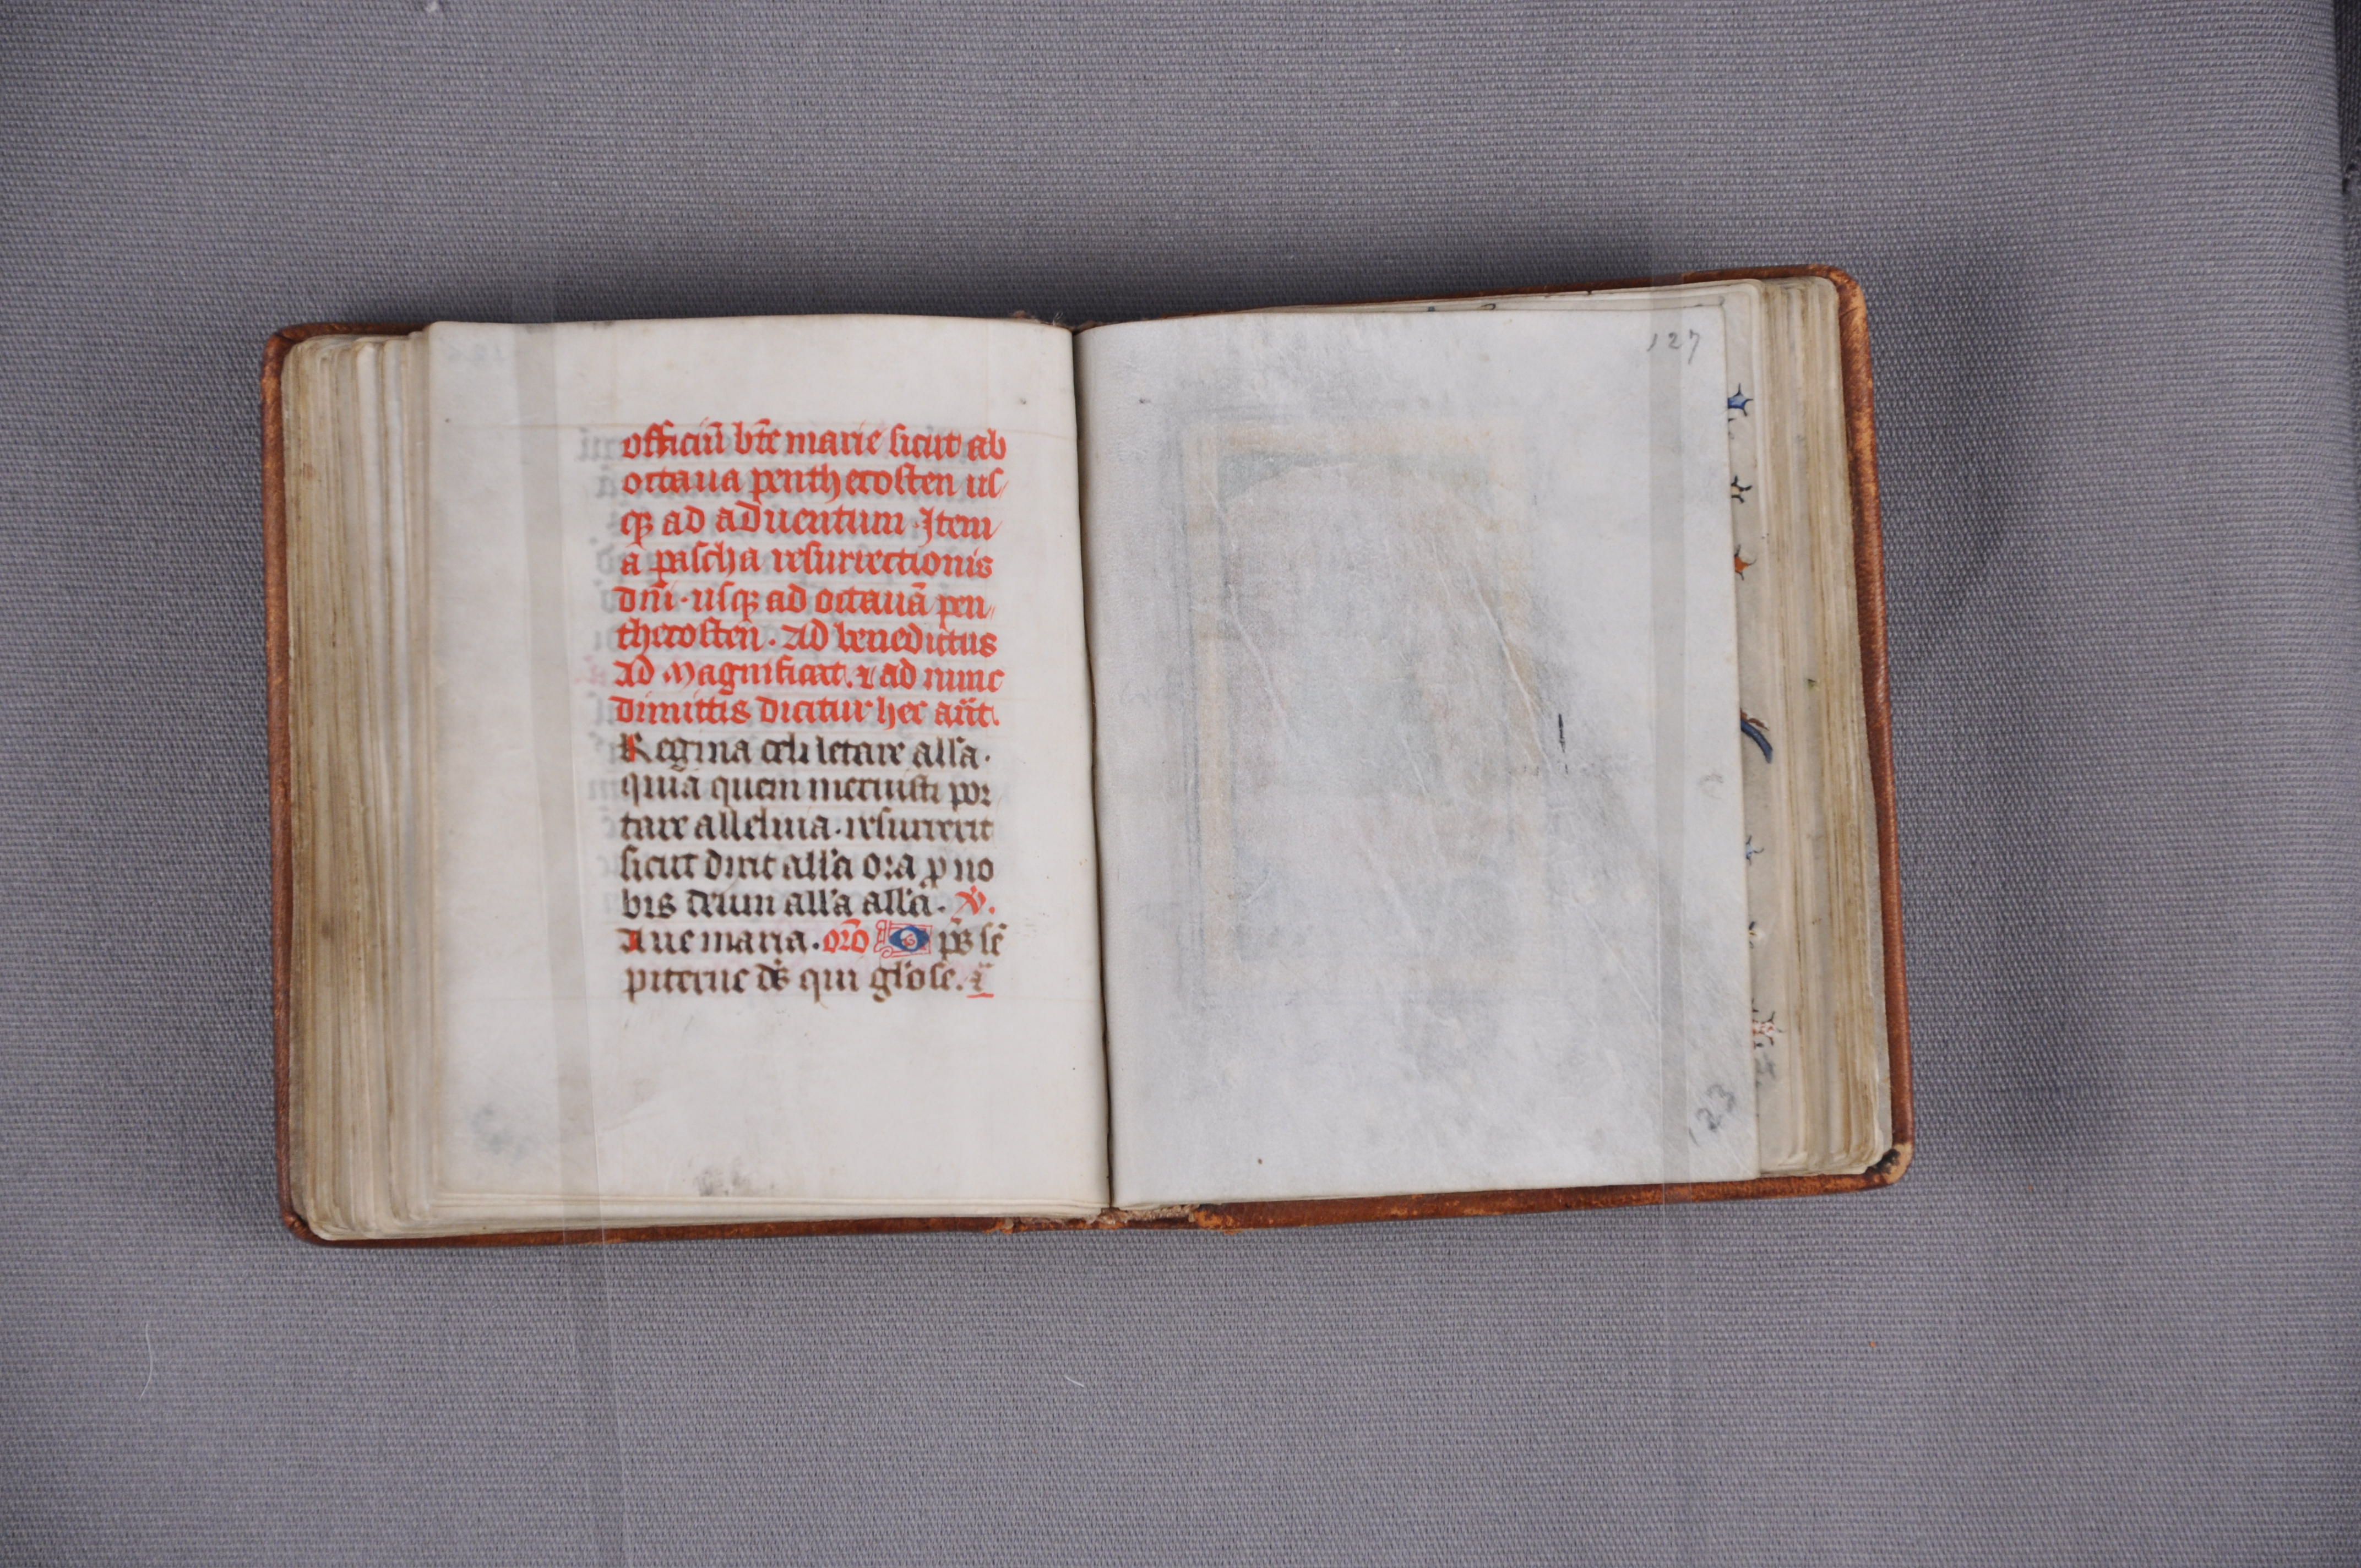 officiū bt̄e marie sicut ab
octaua penthecosten us
qꝫ ad aduentum · Item
a pascha resurrectionis
dn̄i · usqꝫ ad octauā pen
thecosten · Ad benedictus
Ad Magnificat. ⁊ ad nunc
dimittis dicitur hec an̄t.
Regina celi letare all'a ·
quia quem meruisti por
tare alleluia · resurrexit
sicut dixit all'a ora ꝓ no
bis deum all'a all'a · V̇.
Aue maria · or̄o O p̄s sē
piterne ds̄ qui gl'ose.
127
123